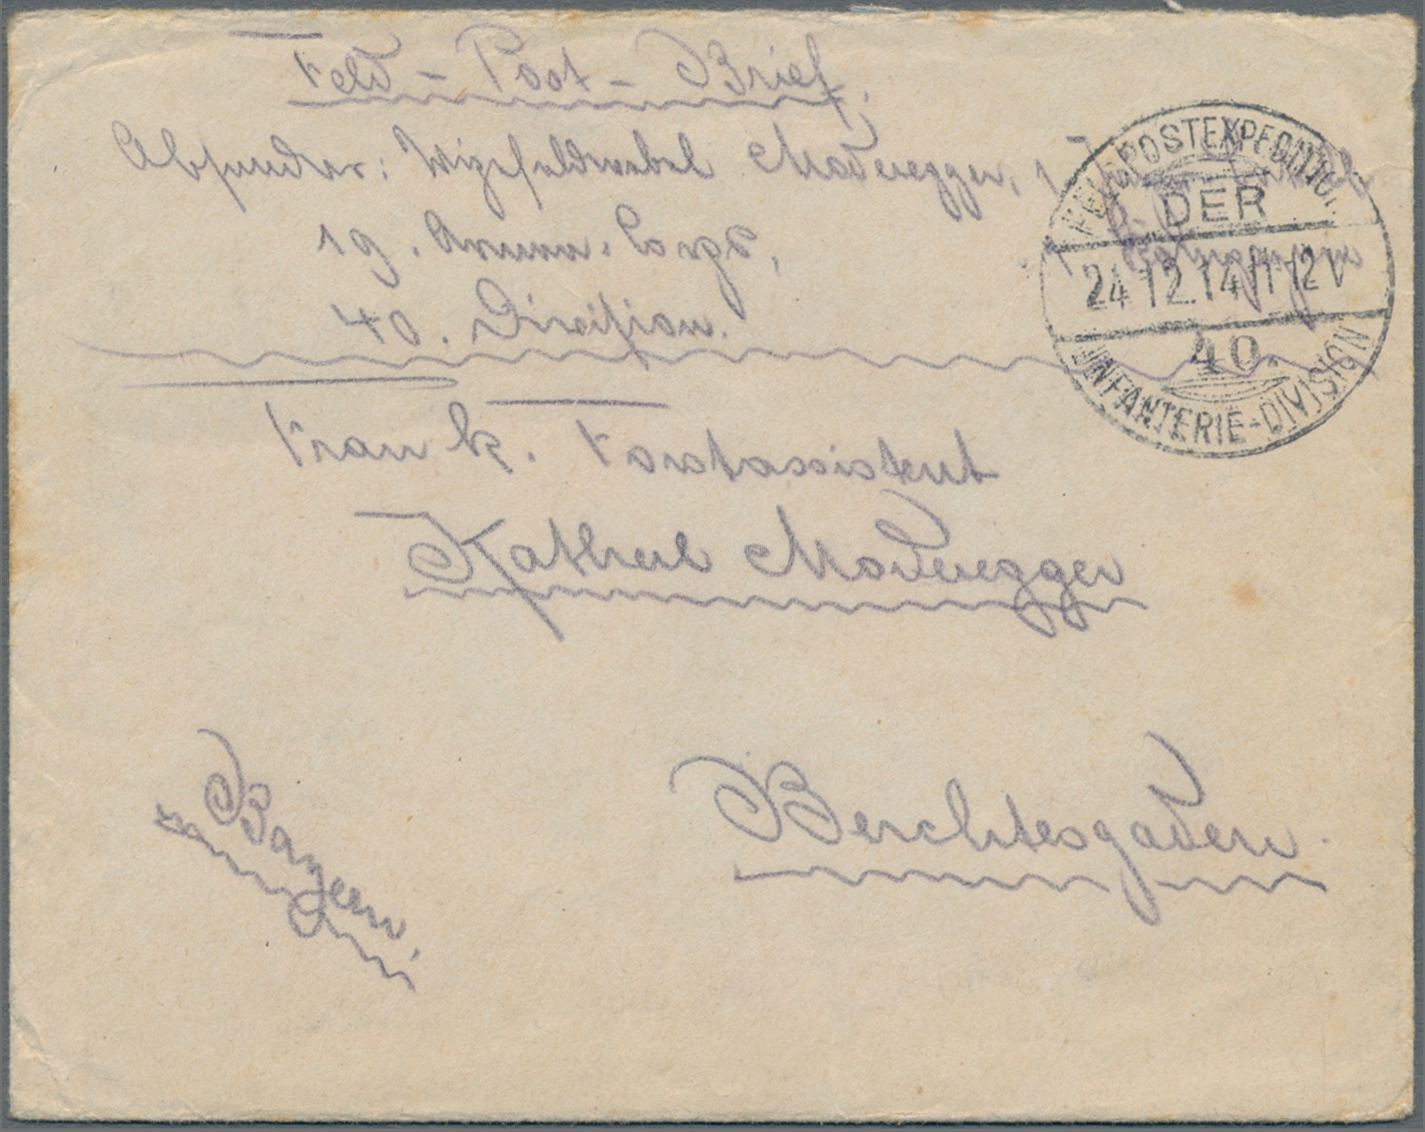 Feld-Post-Brief.
Absender: Vizefeldwebel Maderegger, 1
19. Armee-Corps,
40. Division.
FELDPOSTEXPEDITION
DER
24.12.14 11-12 V
40.
INFANTERIE-DIVISION
Frau k. Forstassistent
Katherl Maderegger
Berchtesgaden.
Bayern.